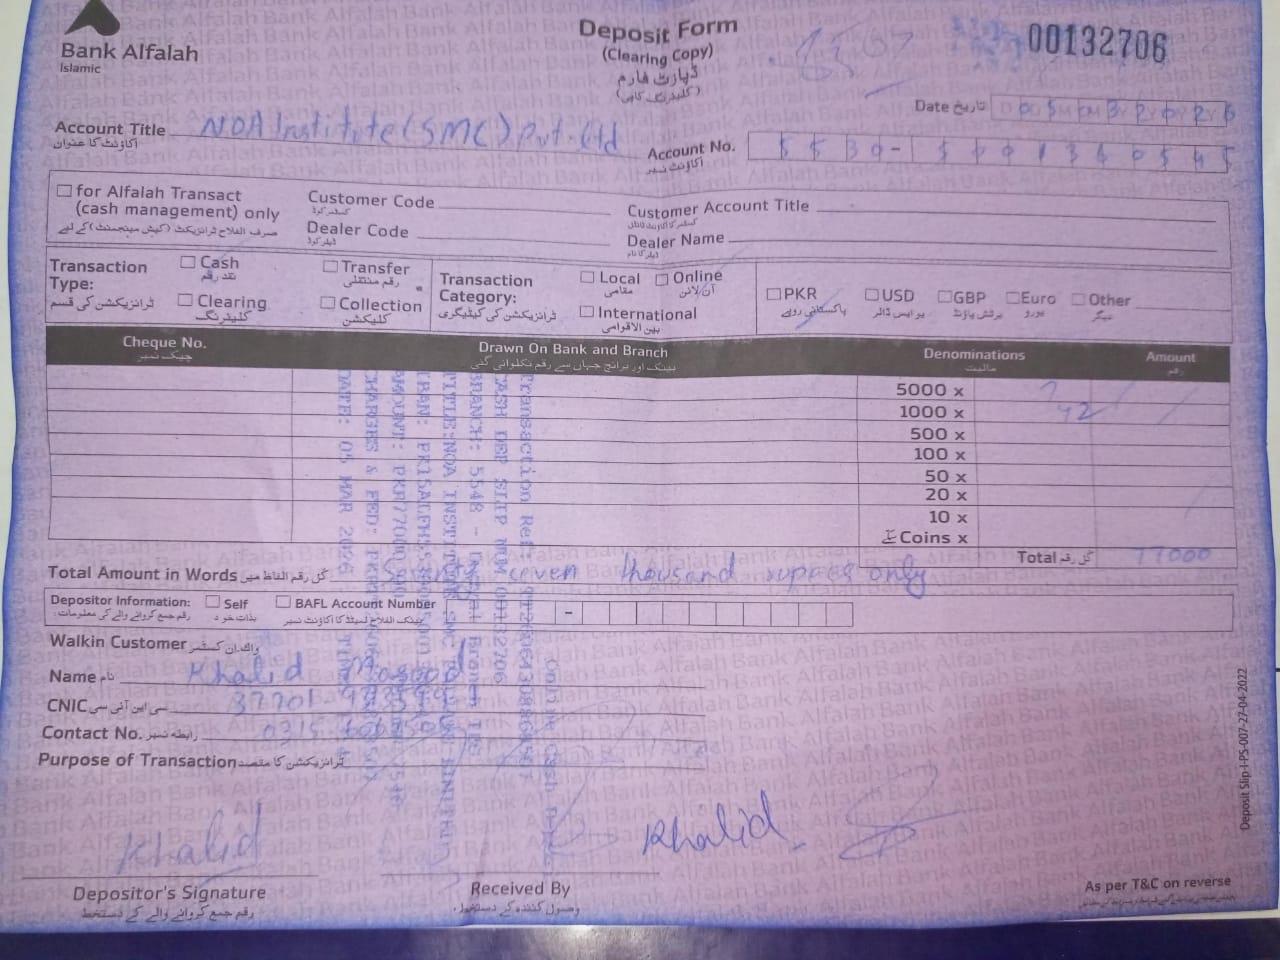 Bank Alfalah
Islamic
Deposit Form
(Clearing Copy)
ڈپازٹ فارم
(کلیئرنگ کاپی)
00132706
Date تاریخ
Account Title NOA Institute (SMC) Pvt. Ltd
اکاؤنٹ کا عنوان
Account No.
اکاؤنٹ نمبر
for Alfalah Transact
(cash management) only
صرف الفلاح ٹرانزیکٹ (کیش مینجمنٹ) کے لیے
Customer Code
کسٹمر کوڈ
Customer Account Title
کسٹمر کا اکاؤنٹ ٹائٹل
Dealer Code
ڈیلر کوڈ
Dealer Name
ڈیلر کا نام
Transaction Type:
ٹرانزیکشن کی قسم
Cash
نقد رقم
Transfer
رقم منتقلی
Clearing
کلیئرنگ
Collection
کلیکشن
Transaction Category:
ٹرانزیکشن کی کیٹیگری
Local
مقامی
Online
آن لائن
International
بین الاقوامی
PKR
پاکستانی روپے
USD
یو ایس ڈالر
GBP
برٹش پاؤنڈ
Euro
یورو
Other
دیگر
Cheque No.
چیک نمبر
Drawn On Bank and Branch
بینک اور برانچ جہاں سے رقم نکلوانی گئی
Denominations
مالیت
Amount
رقم
5000 x
1000 x 42
500 x
100 x
50 x
20 x
10 x
Coins x
Total کل رقم 77000
Total Amount in Words کل رقم الفاظ میں Seventy seven thousand rupees only
Depositor Information:
رقم جمع کروانے والے کی معلومات:
Self
بذات خود
BAFL Account Number
بینک الفلاح لمیٹڈ کا اکاؤنٹ نمبر
Walkin Customer واک ان کسٹمر
Name نام Khalid
CNIC سی این آئی سی 37701-
Contact No. رابطہ نمبر 0315
Purpose of Transaction ٹرانزیکشن کا مقصد
Transaction Ref:
CASH DEP SLIP NUM 00132706
BRANCH: 5548 -
TITLE:NOA INSTITUTE SMC
IBAN:
AMOUNT: PKR77000.00
CHARGES & FED:
DATE: 05 MAR 2026 TIME
Khalid
Khalid
Depositor's Signature
رقم جمع کروانے والے کے دستخط
Received By
وصول کنندہ کے دستخط
As per T&C on reverse
Deposit Slip-I-PS-007-27-04-2022